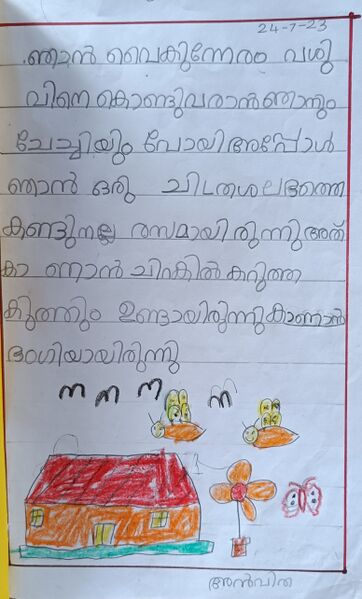 24-7-23
ഞാൻ വൈകുന്നേരം പശു
വിനെ കൊണ്ടുവരാൻഞാനും
ചേച്ചിയും പോയിഅപ്പോൾ
ഞാൻ ഒരു ചിടതശലഭത്തെ
കണ്ടുനല്ല രസമായിരുന്നുഅത്
കാ ണാൻ ചിറകിൽ കറുത്ത
കുത്തും ഉണ്ടായിരുന്നുകാണാൻ
ഭംഗിയായിരുന്നു
അൻവിത